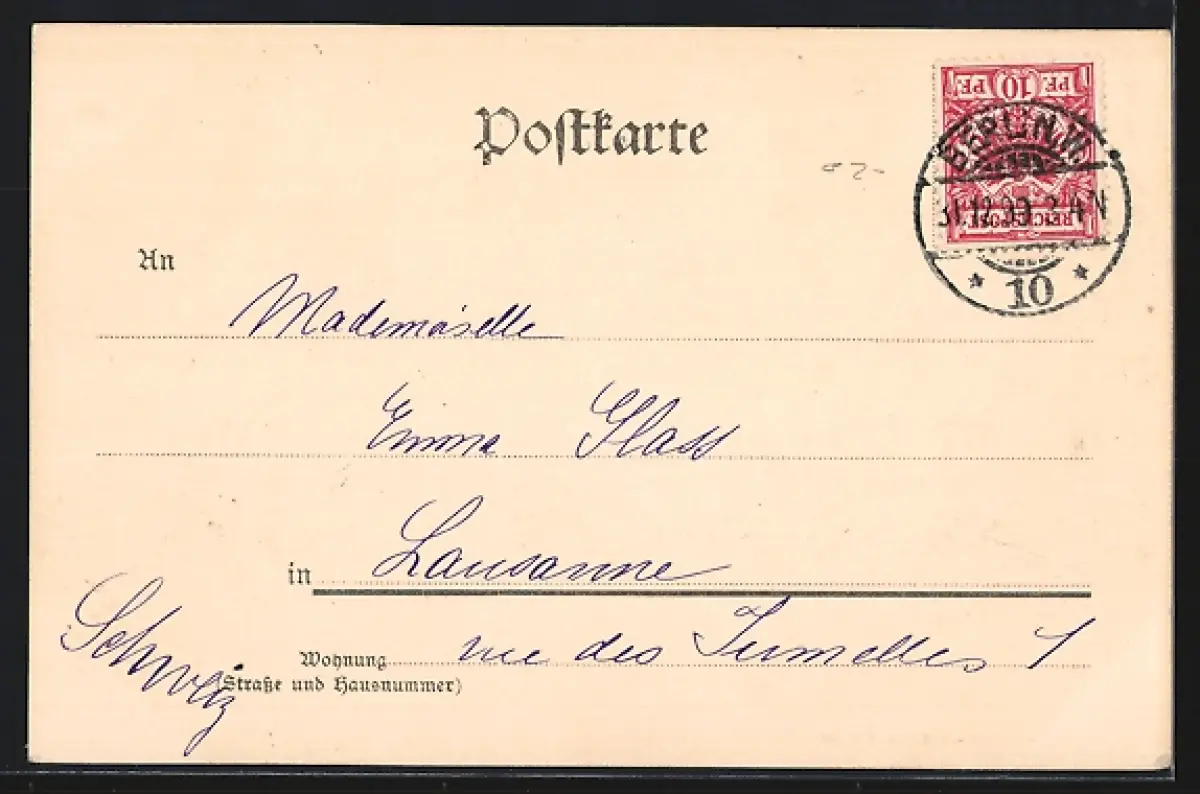 Postkarte
PF. 10 PF.
BERLIN.W.
31.12.99. 2-4 N
REICHSPOST
* 10 *
An
Mademoiselle
Emma Glass
in Lausanne
Schweiz
Wohnung rue des Jumelles 1
(Straße und Hausnummer)